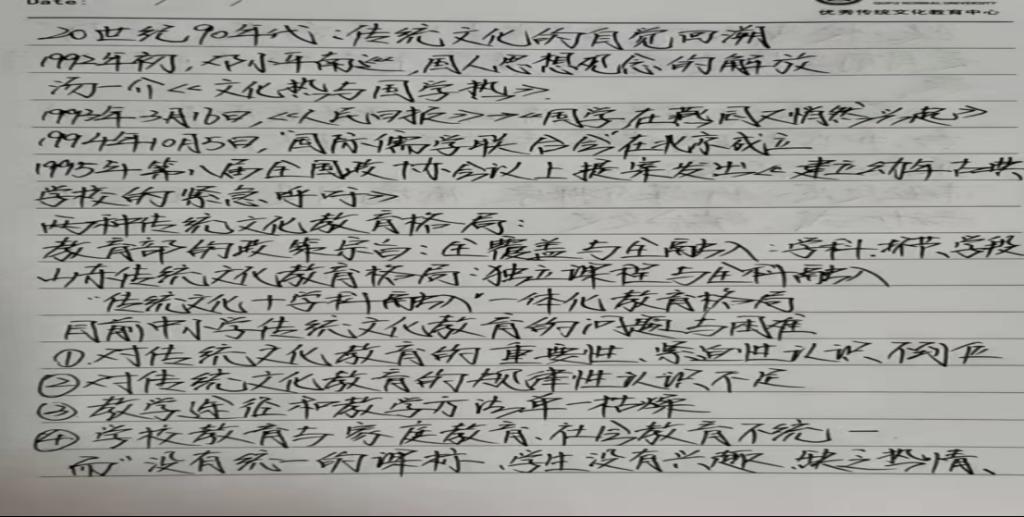 Date:
优秀传统文化教育中心
20世纪90年代:传统文化的自觉回溯
1992年初,邓小平南巡,国人思想观念的解放
汤一介《文化热与国学热》
1993年3月16日,《人民日报》→《国学,在燕园又悄然兴起》
1994年10月5日,"国际儒学联合会"在北京成立
1995年第八届全国政协会议上提案发出《建立幼年古典
学校的紧急呼吁》
两种传统文化教育格局:
教育部的政策导向:全覆盖与全融入:学科、环节、学段
山东传统文化教育格局:独立课程与全科融入
"传统文化+学科融入"一体化教育格局
目前中小学传统文化教育的问题与困难
①对传统文化教育的重要性、紧迫性认识不到位
②对传统文化教育的规律性认识不足
③教学途径和教学方法单一枯燥
④学校教育与家庭教育、社会教育不统一
而"没有统一的课材、学生没有兴趣、缺乏热情、